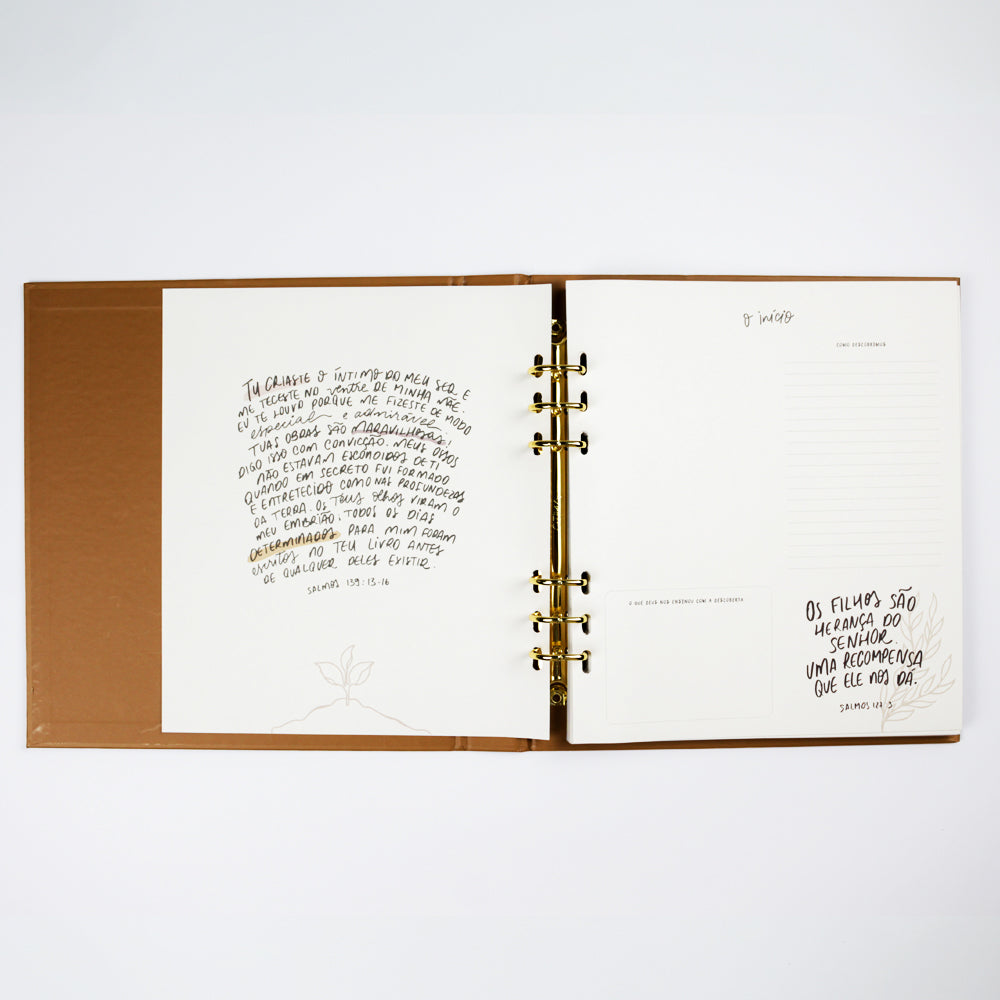 TU CRIASTE O ÍNTIMO DO MEU SER E
ME TECESTE NO ventre DE MINHA MÃE.
EU TE LOUVO PORQUE ME FIZESTE DE MODO
especial e admirável.
TUAS OBRAS SÃO MARAVILHOSAS!
DIGO ISSO COM CONVICÇÃO. MEUS OSSOS
NÃO ESTAVAM ESCONDIDOS DE TI
QUANDO EM SECRETO FUI FORMADO
E ENTRETECIDO COMO NAS PROFUNDEZAS
DA TERRA. OS TEUS olhos VIRAM O
MEU EMBRIÃO; TODOS OS DIAS
DETERMINADOS PARA MIM FORAM
escritos NO TEU LIVRO ANTES
DE QUALQUER DELES EXISTIR.
SALMOS 139:13-16
o início
COMO DESCOBRIMOS
O QUE DEUS NOS ENSINOU COM A DESCOBERTA
OS FILHOS SÃO
HERANÇA DO
SENHOR.
UMA RECOMPENSA
QUE ELE NOS DÁ.
SALMOS 127:3